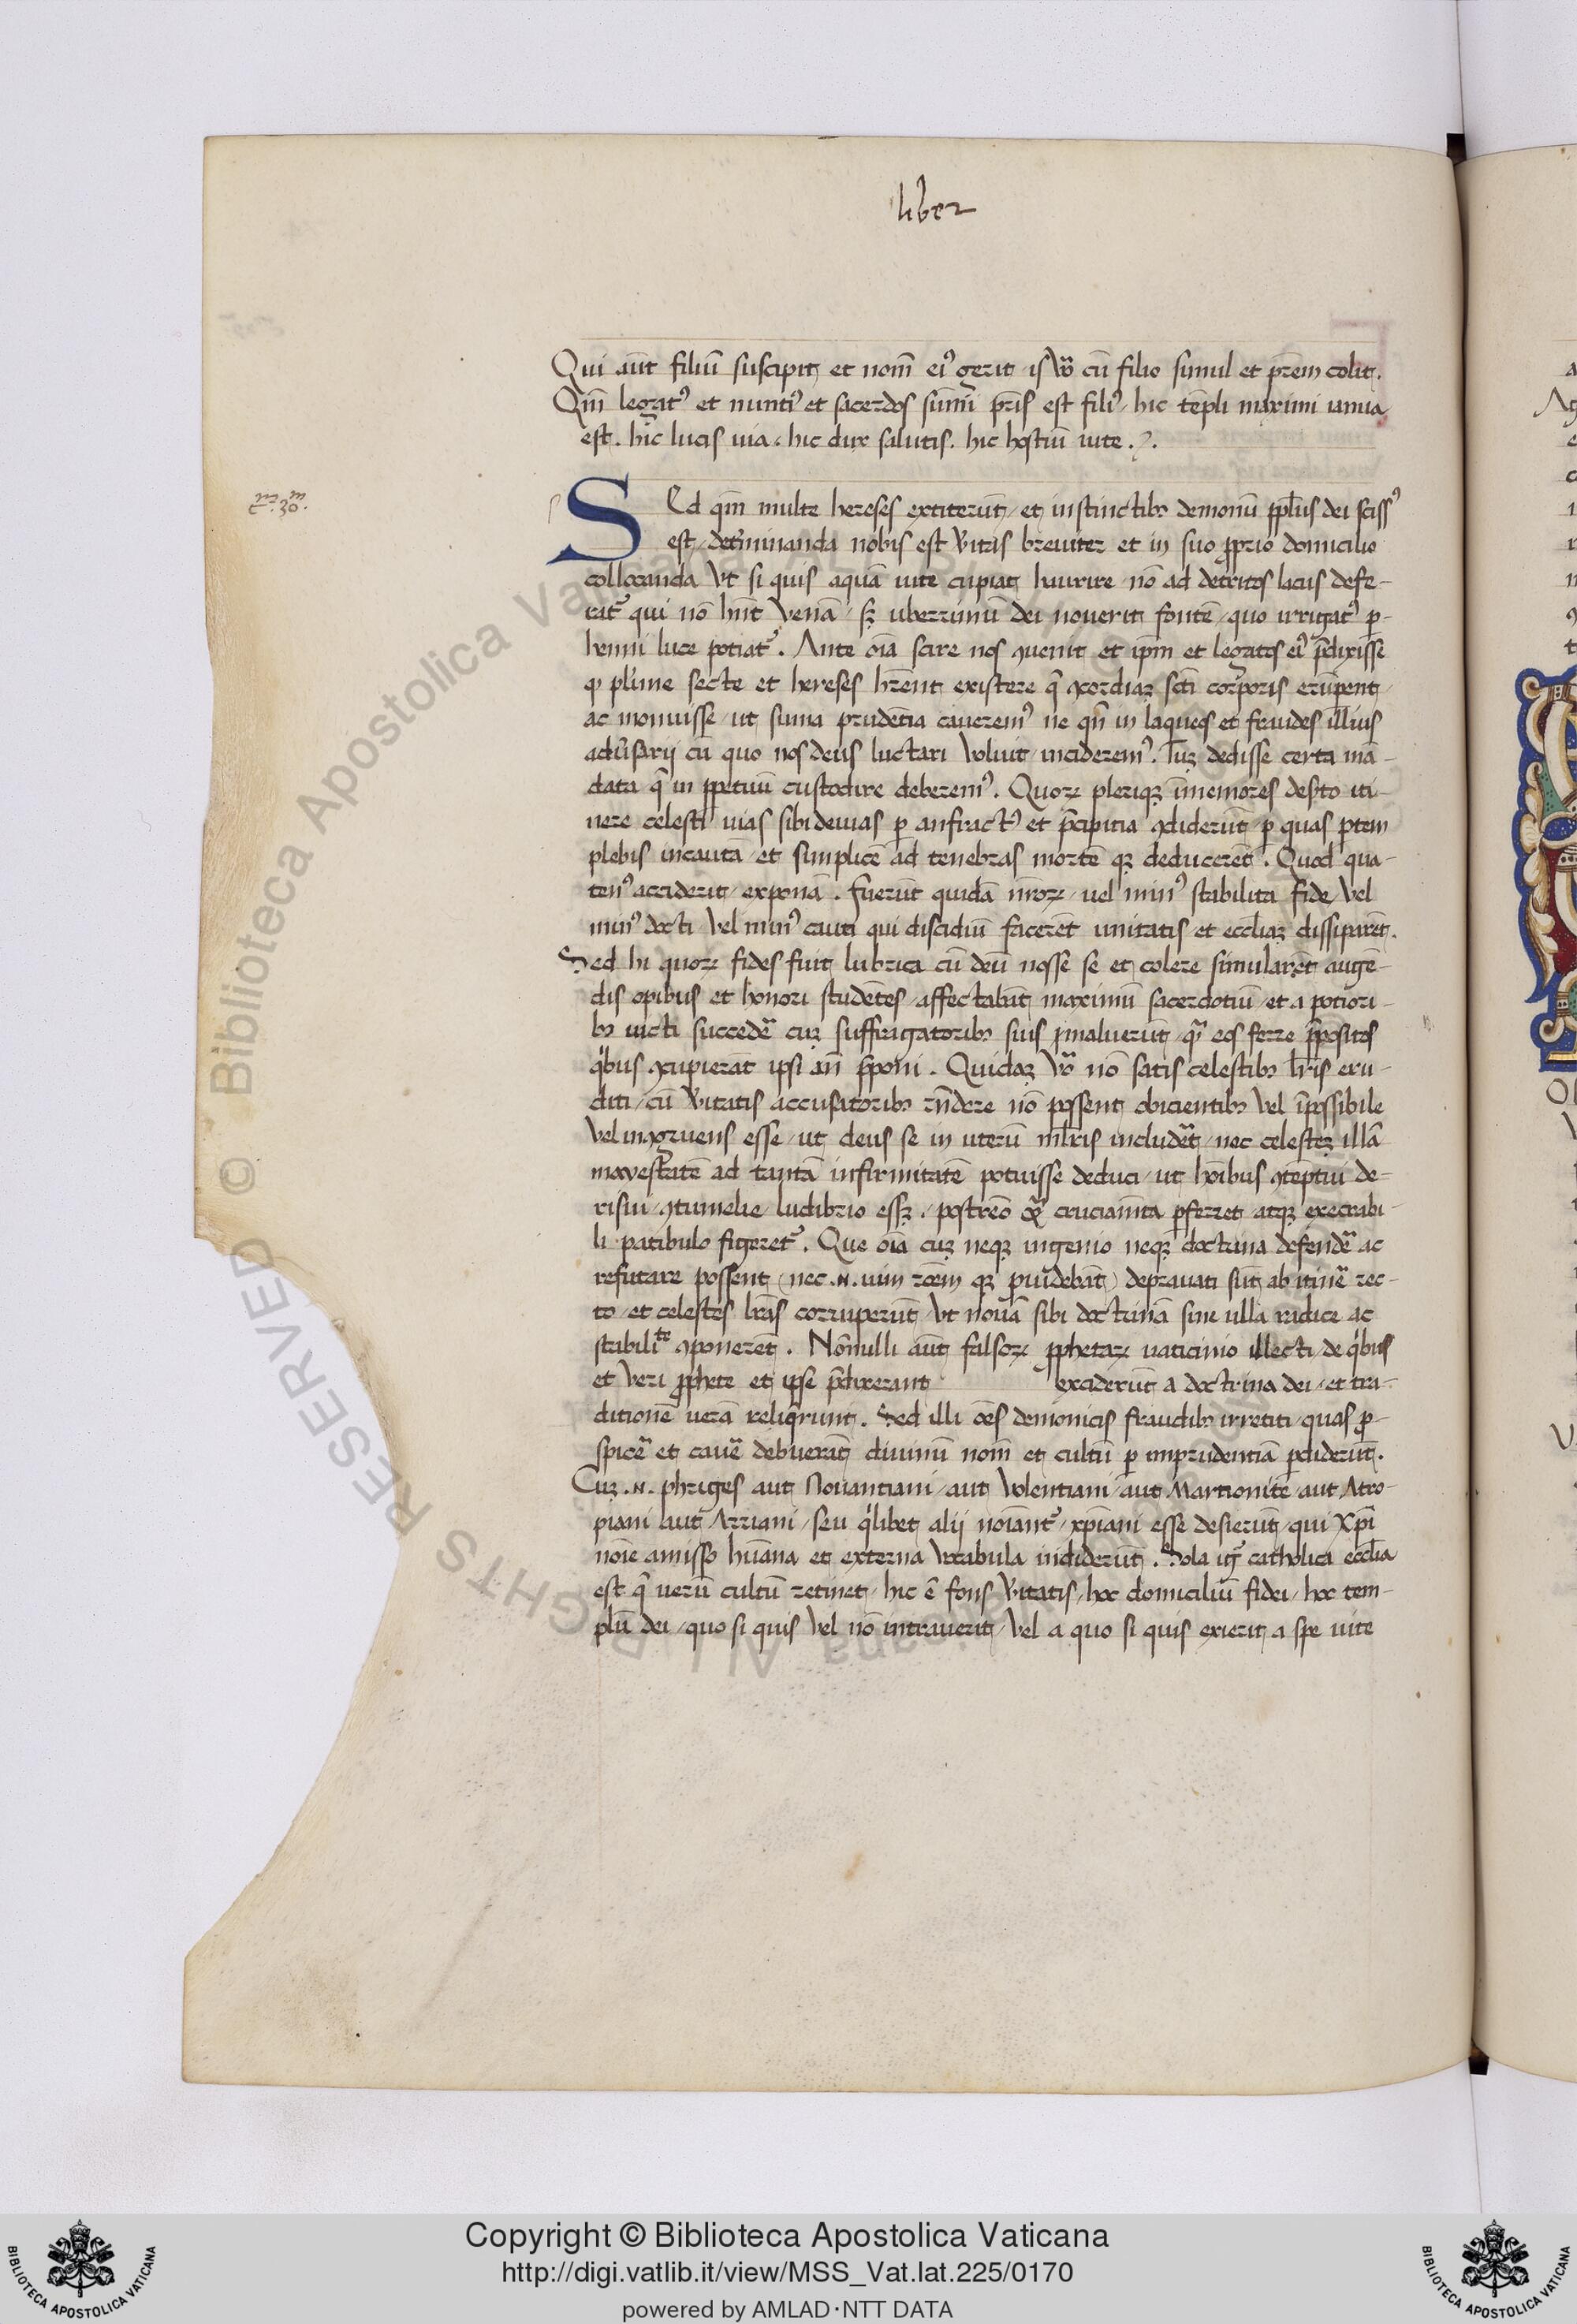 liber
Qui aūt filiū suscipit et nom̄ eiꝰ gerit is ỽo cū filio simul et p̄rem colit.
Qm̄ legatꝰ et nuntiꝰ et sacerdos sūmi p̄ris est filiꝰ / hic tēpli maximi ianua
est . hic lucis uia . hic dux salutis . hic hostiū uite .
SEd qm̄ multe hereses extiterūt / et instinctibꝫ demonū ppl̄us dei scissꝰ
est / det̄minanda nobis est v̄itas breuiter et in suo ꝓprio domicilio
collocanda vt si quis aquā uite cupiat haurire nō ad detritos lacus defe-
rat᷑ qui nō hn̄t venā / sꝫ uberrimū dei nouerit fontē / quo irrigatꝰ ꝑ-
henni luce potiat᷑ . Ante oīa scire nos ꝯuenit et ip̄m et legatos eiꝰ p̄dixisse
ꝙ pl'ime secte et hereses hr̄ent existere q̄ ꝯcordiaꝫ sc̄ti corporis erūpent
ac monuisse / ut suma prudētia caueremꝰ ne qn̄ in laqueos et fraudes illius
adūsarij cū quo nos deus luctari voluit / incideremꝰ . Tuꝫ dedisse certa mā-
data q̄ in ꝑpetuū custodire deberemꝰ . Quoꝝ pleriqꝫ īmemores des̄to iti-
nere celesti uias sibi deuias ꝑ anfractꝰ et p̄cipitia ꝯdiderūt ꝑ quas ꝑtem
plebis incautā et simplicē ad tenebras mortē qꝫ deducerēt . Quod qua-
tenꝰ acciderit / exponā . Fuerūt quidā nr̄oꝝ / uel minꝰ stabilita fide vel
minꝰ docti vel minꝰ cauti qui discidiū facerēt unitatis et eccl̄iaꝫ dissiparēt.
Sed hi quoꝝ fides fuit lubrica cū deū nosse se et colere simularēt augē-
dis opibus et honori studētes / affectabāt maximū sacerdotiū / et a potiori-
bꝫ uicti succedē cuꝫ suffragatoribꝫ suis maluerūt / qᷓ eos ferre p̄positos
qⁱbus ꝯcupierāt ipsi an̄ p̄poni . Quidaꝫ ỽo nō satis celestibꝫ lr̄is eru-
diti / cū v̄itatis accusatoribꝫ rn̄dere nō possent obicientibꝫ vel īpossibile
vel inꝯgruens esse / ut deus se in uterū ml̄ris includēt / nec celesteꝫ illā
maiestatē ad tantā infirmitatē potuisse deduci / ut hoīibus ꝯteptui de-
risui / ꝯtumelie ludibrio essꝫ . / postreō cruciam̄ta ꝑferret atqꝫ execrabi-
li patibulo figeret᷑ . Que oīa cuꝫ neqꝫ ingenio neqꝫ doctrina defendē ac
refutare possent (nec .N. uim rōem qꝫ ꝑuidebāt) deprauati sūt ab itinē rec-
to / et celestes lr̄as corruperūt / vt nouā sibi doctrinā sine ulla radice ac
stabilite ꝯponerēt . Nōnulli aūt falsoꝝ ꝓphetaꝝ uaticinio illecti / de qⁱbus
et veri ꝓphete et ipse p̄dixerant exciderūt a doctrina dei / et tra-
ditionē uerā reliq̄runt . Sed illi oēs demonicis fraudibꝫ irretiti / quas ꝓ-
spicē et cauē debuerāt diuinū nom̄ et cultū ꝑ imprudentiā ꝑdiderūt .
Cuꝫ .N. phriges aut Nouantiani / aut volentiani / aut Martionite / aut Atro-
piani / aut Arriani / seu qⁱlibet alij noīant᷑ / xp̄iani esse desierūt / qui Xp̄i
noīe amisso huāna et externa vocabula indiderūt . Sola igⁱ᷑ catholica eccl̄ia
est q̄ uerū cultū retinet / hic ē fons v̄itatis / hoc domiciliū fidei / hoc tem-
plū dei / quo si quis vel nō intrauerit / vel a quo si quis exierit a spe uite
Copyright © Biblioteca Apostolica Vaticana
http://digi.vatlib.it/view/MSS_Vat.lat.225/0170
powered by AMLAD·NTT DATA